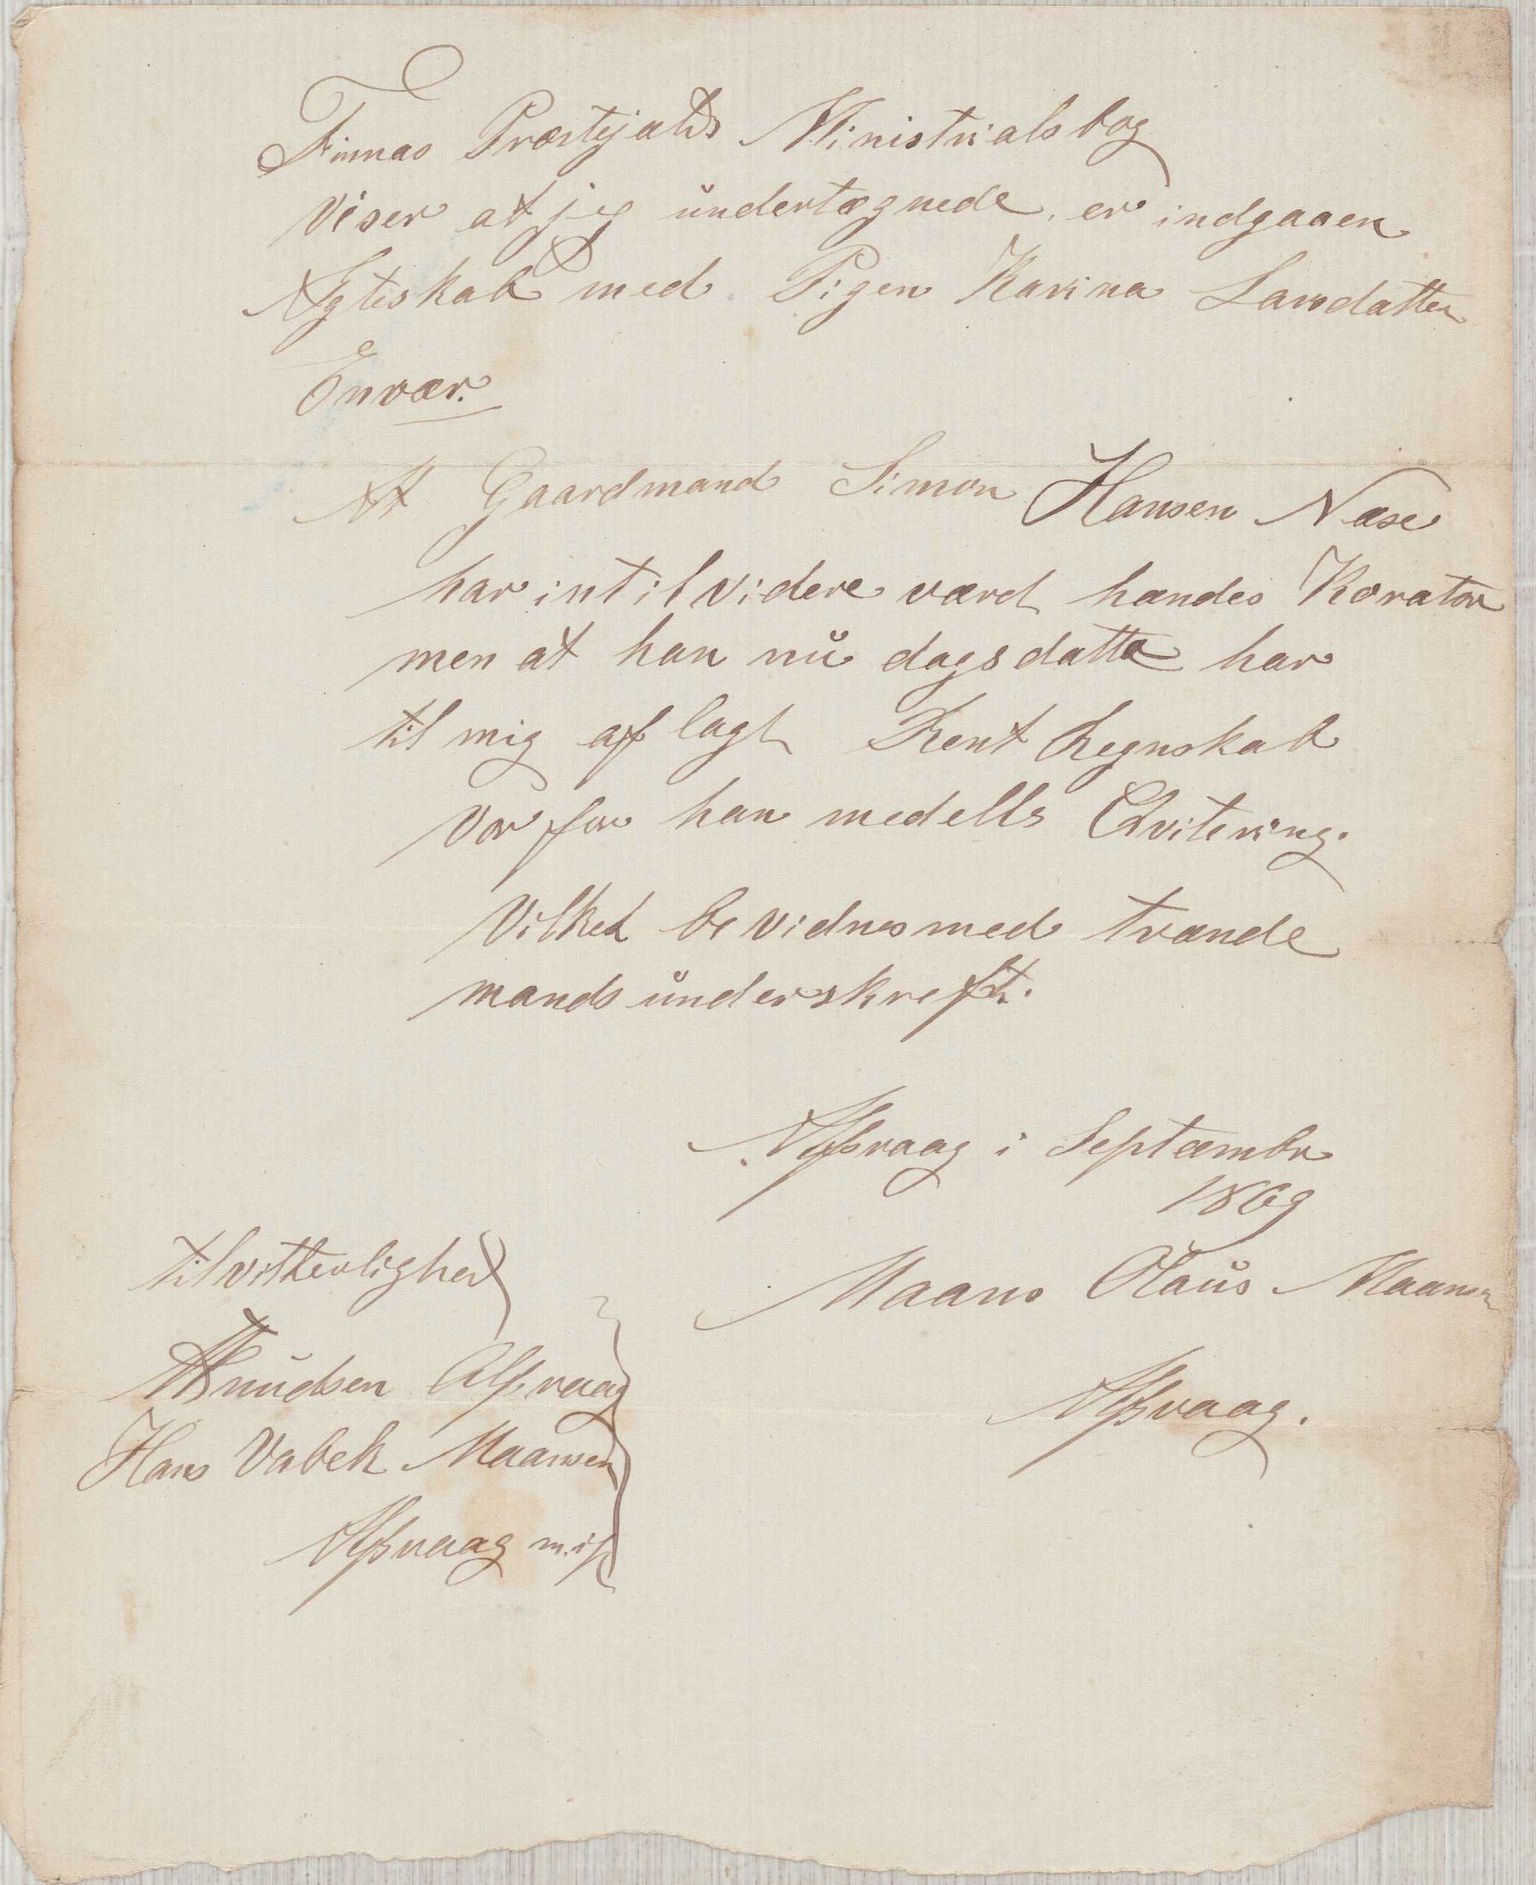 Finnas Præstejælds Ministrialsbog
viser at jeg undertægnede, er indgaaen
Ægteskab med Pigen Karina Larsdatter
Envær.
At Gaardmand Simon Hansen Næse
har intil videre værd hændes Korator
men at han nu dagsdatto har
til mig aflagt Rent Regnskab
vorfor han medells Qvitering.
Vilket bevidnes med tvænde
mands underskreft.
Alfsvaag i Septæmbr
1869
Maans Olaus Maansen
Alfsvaag.
til vitterlighed
Knudsen Alfsvaag
Hans Vabek Maansen
Alfsvaag